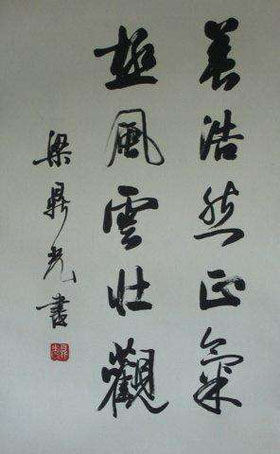 養浩然正氣
極風雲壯觀
梁鼎光書